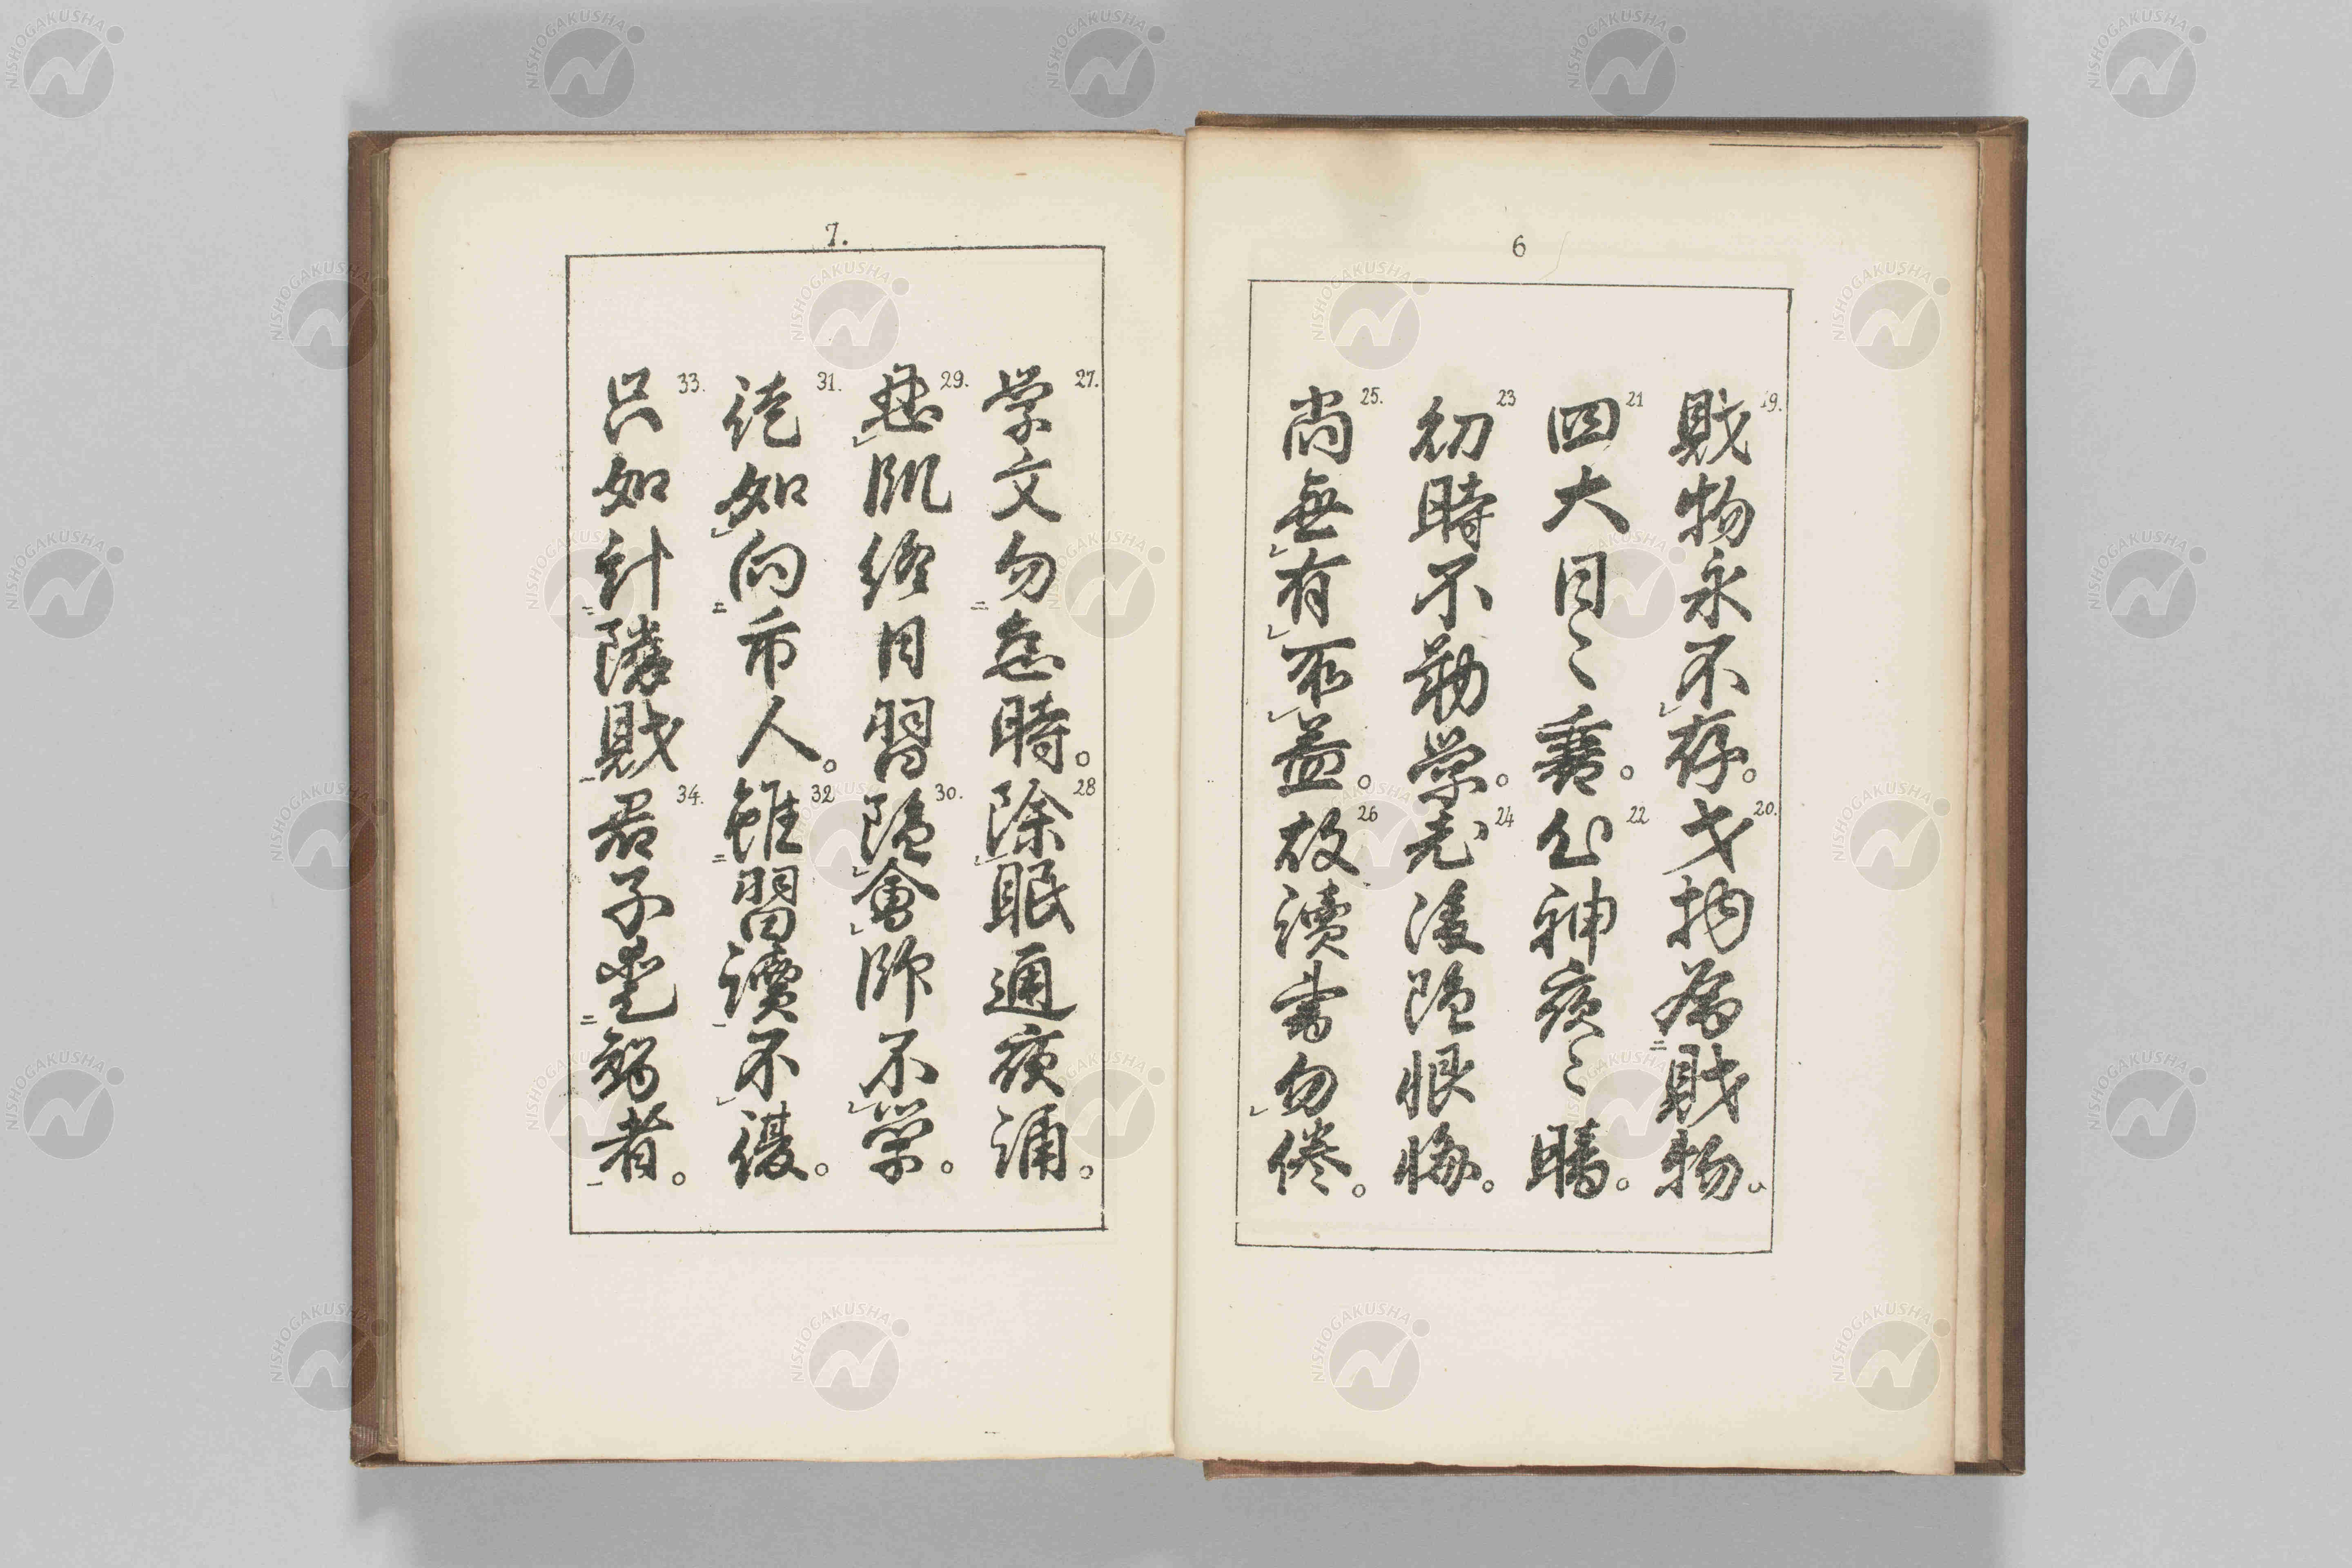 6
19. 財物永不存。 20. 才物為財物。
21 四大日〻衰。 22 心神夜〻暗。
23 幼時不勤学。 24 老後雖恨悔。
25. 尚無有所益。 26 故讀書勿倦。
7.
27. 学文勿怠時。 28 除眠通夜誦。
29. 忍飢終日習 30. 雖會師不学。
31. 徒如向市人。 32 雖習讀不復。
33. 只如計隣財 34. 君子愛智者。
NISHOGAKUSHA